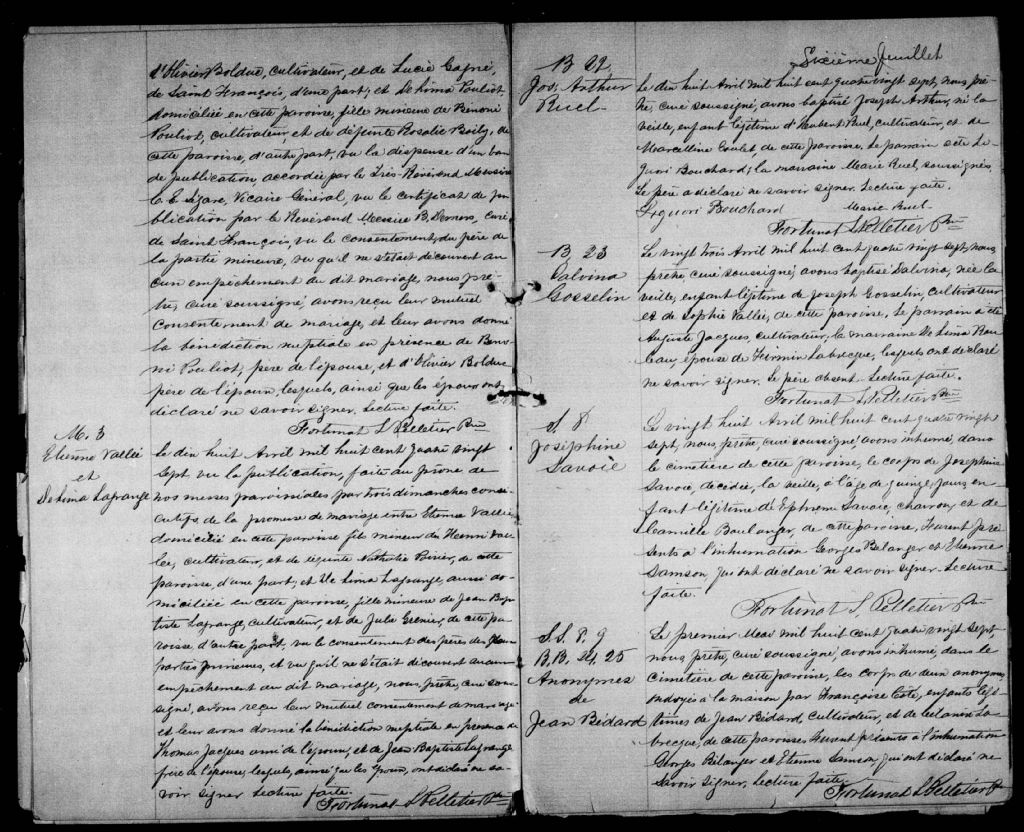 d'Olivier Bolduc, cultivateur, et de Lucie Gagné,
de Saint François, d'une part, et De Lima Pouliot
domiciliée en cette paroisse, fille mineure de Bénoni
Pouliot, cultivateur, et de défunte Rosalie Boily, de
cette paroisse, d'autre part, vu la dispense d'un ban
de publication, accordée par le Très-Révérend Messire
C. E. Légaré, Vicaire Général, vu le certificat de pu-
blication par le Révérend Messire B. Demers, curé
de Saint François, vu le consentement du père de
la partie mineure, vu qu'il ne s'était découvert au
cun empêchement au dit mariage, nous prê-
tre, curé soussigné, avons reçu leur mutuel
consentement de mariage, et leur avons donné
la bénédiction nuptiale en présence de Béno-
ni Pouliot, père de l'épouse, et d'Olivier Bolduc
père de l'époux, lesquels, ainsi que les époux ont
déclaré ne savoir signer. Lecture faite.
Fortunat S Pelletier Ptre
M. 3
Etienne Vallée
et
De Lima Lagrange
Le dix huit Avril mil huit cent quatre vingt
sept vu la publication, faite au prône de
nos messes paroissiales par trois dimanches consé-
cutifs, de la promesse de mariage entre Etienne Vallée
domicilié en cette paroisse fils mineur de Henri Val-
lée, cultivateur, et de défunte Nathalie Poirier, de cette
paroisse, d'une part, et De Lima Lagrange, aussi do-
miciliée en cette paroisse, fille mineure de Jean Bap-
tiste Lagrange, cultivateur, et de Julie Grenier, de cette pa-
roisse, d'autre part, vu le consentement des pères des
parties mineures, et vu qu'il ne s'était découvert aucun
empêchement au dit mariage, nous, prêtre, curé sous-
signé, avons reçu leur mutuel consentement de mariage
et leur avons donné la bénédiction nuptiale en présence de
Thomas Jacques ami de l'époux, et de Jean Baptiste Lagrange
frère de l'épouse, lesquels, ainsi que les époux, ont déclaré ne sa-
voir signer. Lecture faite.
Fortunat S Pelletier Ptre
Sixième feuillet
B 22
Jos. Arthur
Ruel
Le dix huit Avril mil huit cent quatre vingt sept, nous, prê-
tre, curé soussigné, avons baptisé Joseph Arthur, né la
veille, enfant légitime d'Hubert Ruel, cultivateur, et de
Marcelline Goulet, de cette paroisse. Le parrain a été Li-
guori Bouchard, la marraine Marie Ruel, soussignés.
Le père a déclaré ne savoir signer. Lecture faite.
Liguori Bouchard Marie Ruel
Fortunat S Pelletier Ptre
B. 23
Dalvina
Gosselin
Le vingt trois Avril mil huit cent quatre vingt sept, nous
prêtre curé soussigné, avons baptisé Dalvina, née la
veille, enfant légitime de Joseph Gosselin, cultivateur
et de Sophie Vallée, de cette paroisse. Le parrain a été
Auguste Jacques, cultivateur, la marraine De Lima Rou-
leau, épouse de Firmin Labrecque, lesquels ont déclaré
ne savoir signer. le père absent. Lecture faite.
Fortunat S Pelletier Ptre
S. 8
Joséphine
Savoie
Le vingt huit Avril mil huit cent quatre vingt
sept, nous, prêtre, curé soussigné avons inhumé, dans
le cimetière de cette paroisse, le corps de Joséphine
Savoie, décédée, la veille, à l'âge de quinze jours en-
fant légitime d'Ephrem Savoie, charron, et de
Camille Boulanger, de cette paroisse, Furent pré-
sents à l'inhumation Georges Bélanger et Etienne
Samson, qui ont déclaré ne savoir signer. Lecture
faite.
Fortunat S Pelletier Ptre
S.S. 8. 9
B.B. 24. 25
Anonymes
de
Jean Bédard
Le premier Mai mil huit cent quatre vingt sept
nous, prêtre, curé soussigné, avons inhumé, dans le
cimetière de cette paroisse, les corps de deux anonymes
ondoyés à la maison par Françoise Coté, enfants légi-
times de Jean Bédard, cultivateur, et de Célanire La-
brecque, de cette paroisse. Furent présents à l'inhumation
Georges Bélanger et Etienne Samson qui ont déclaré ne
savoir signer, Lecture faite.
Fortunat S Pelletier Ptre